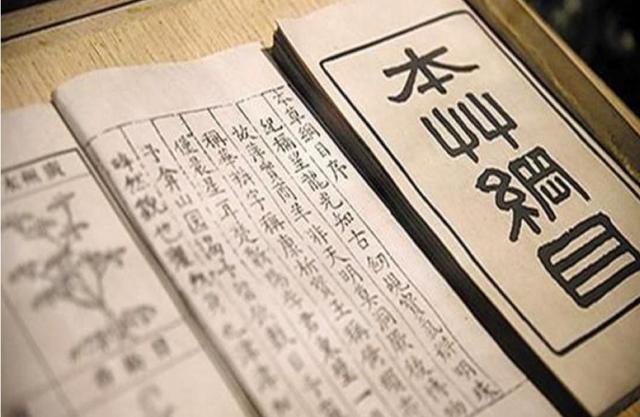 本艸綱目
本草綱目序
紀稱望龍光知古劒覘寶氣辨明珠
故萍實商羊非天明莫洞厥後博物
稱華辨字稱康析寶玉稱倚頓
僅晨星耳楚蘄陽李君東璧一
予弇山園謁予留飲數日予
睟然貌也癯然